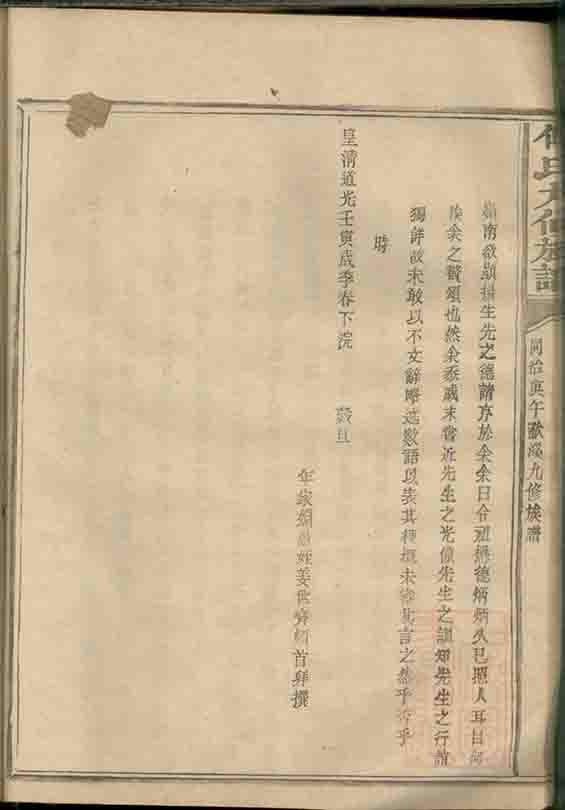 氏九修族譜
同治庚午歐溪九修族譜
南欲顯揚生先之德請序於余余曰令祖 德炳炳久已照人耳目
余之贊頌也然余忝戚末嘗近先生之光 先生之訓知先生之行
獨詳故未敢以不文辭略述數語以表其梗概未 言之然乎否乎
時
皇清道光壬寅歲季春下浣 穀旦
年家姻 姪姜世 首拜撰